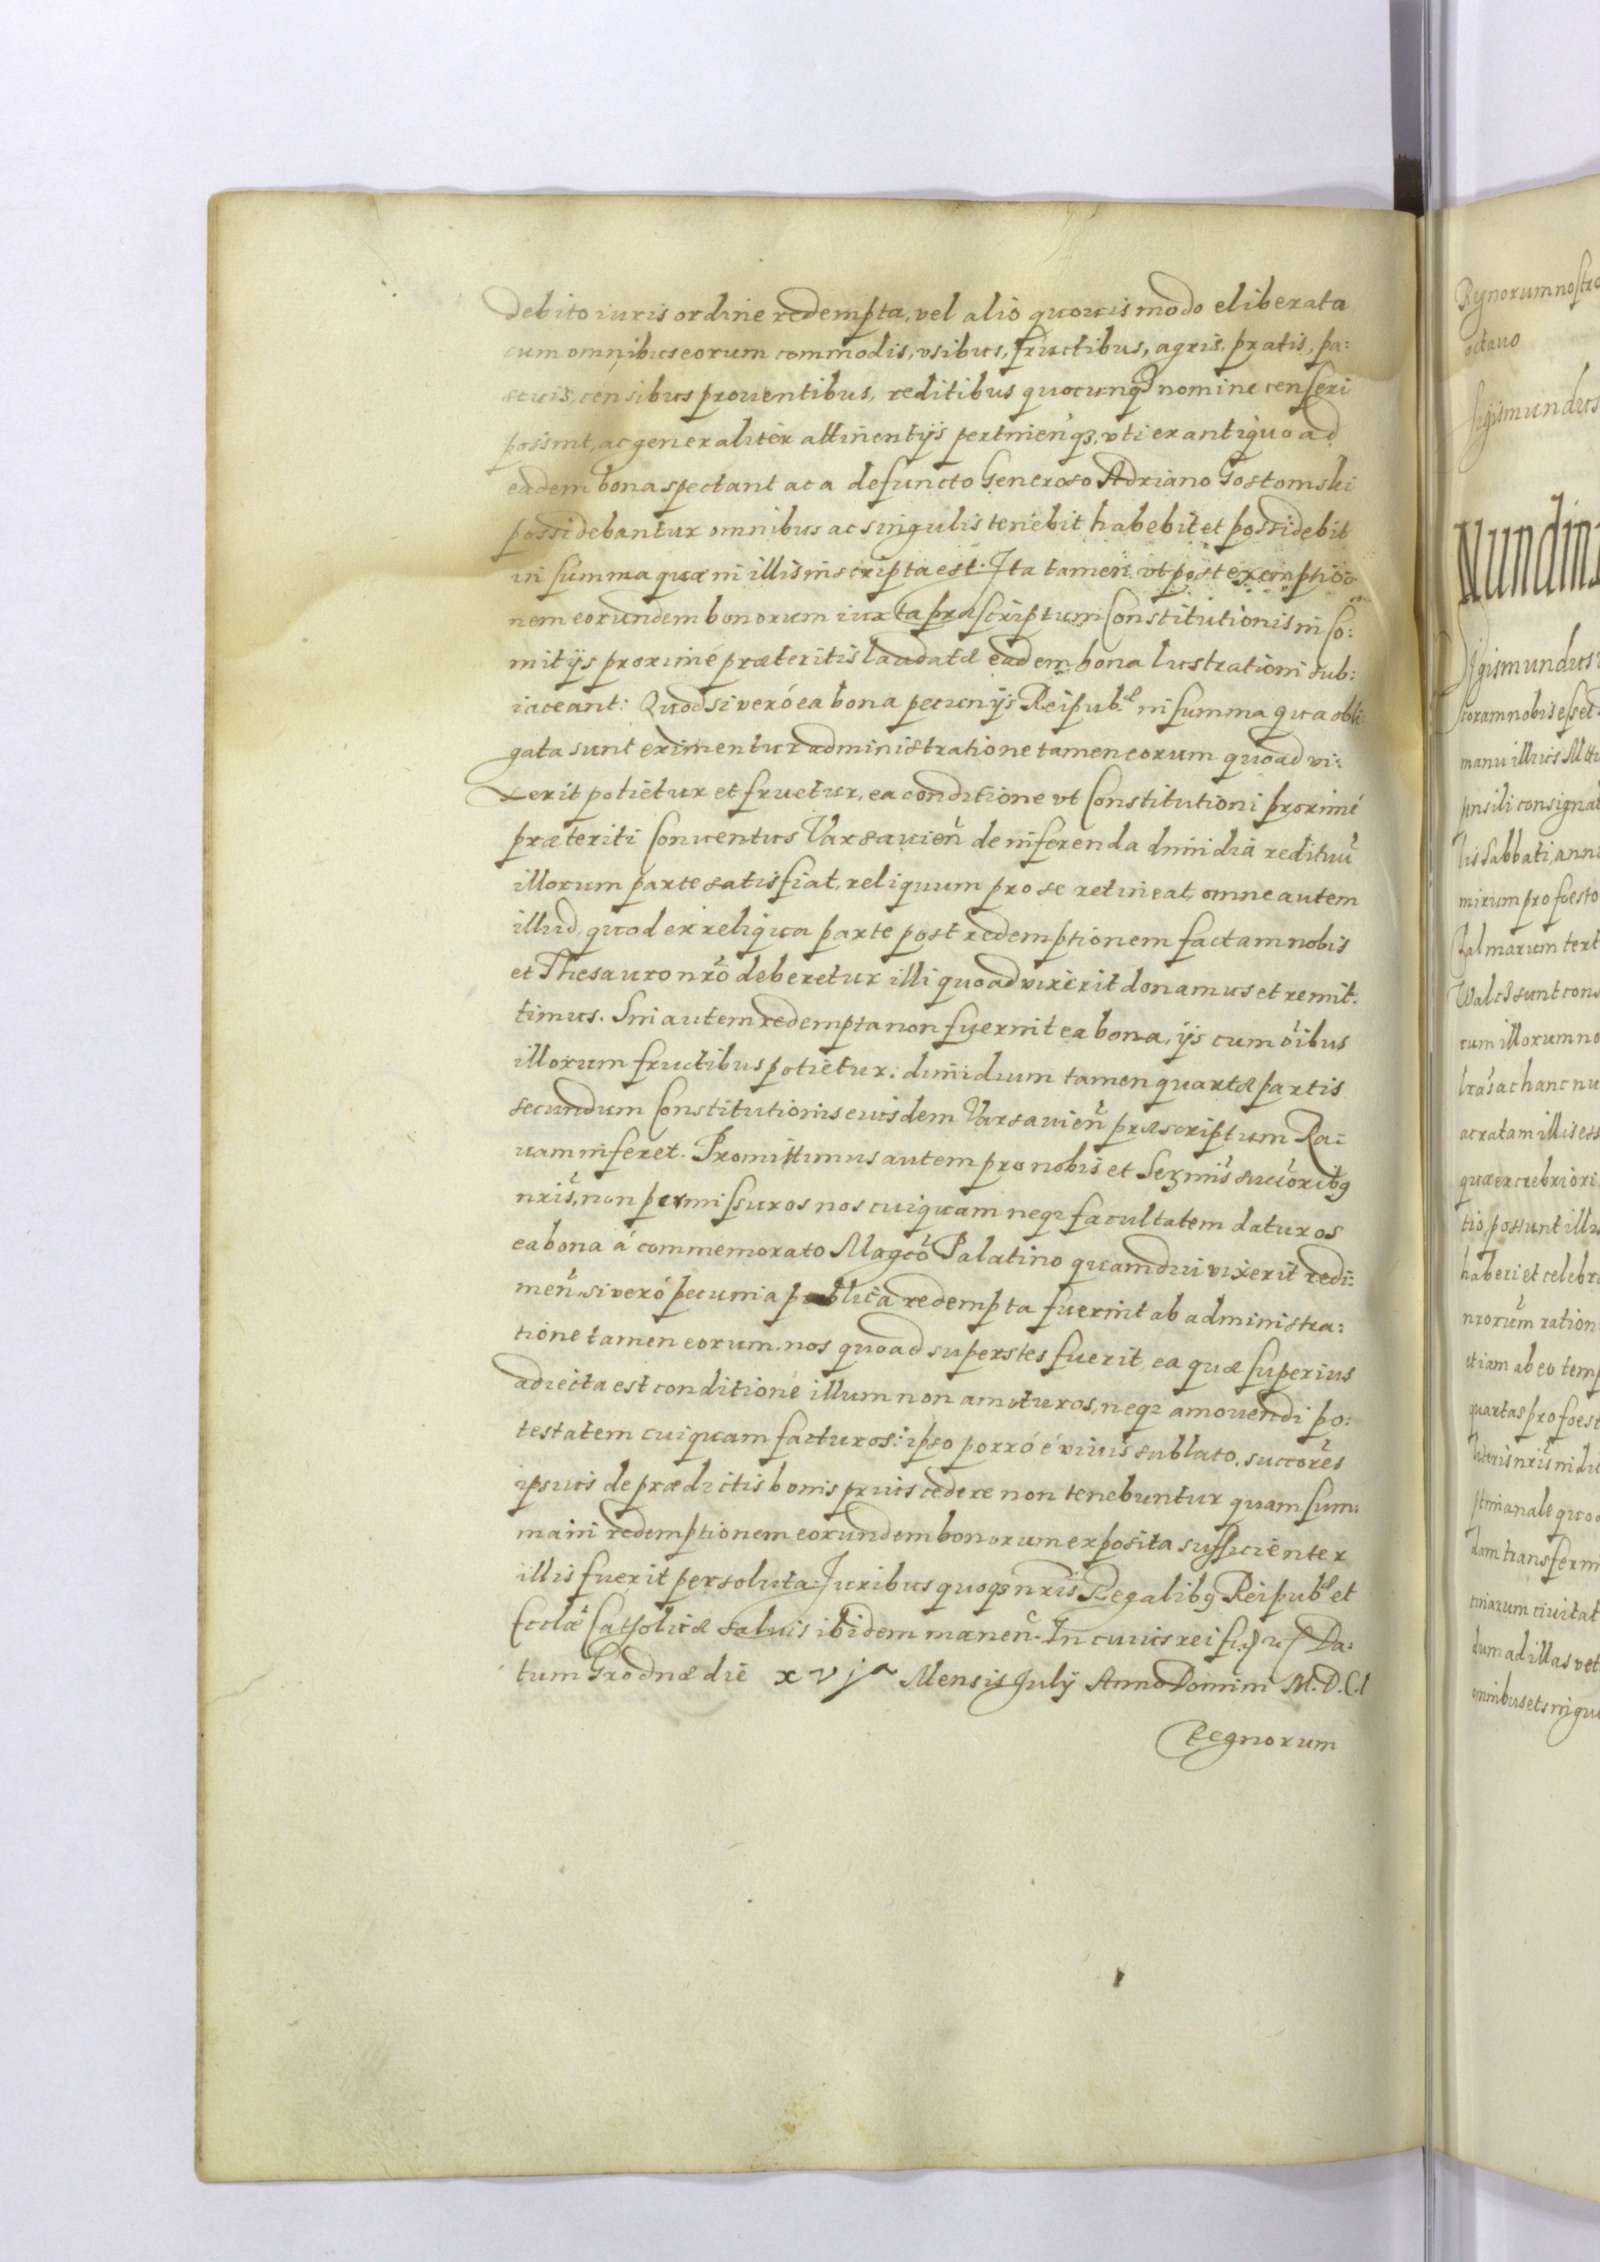 debito iuris ordine redempta, vel alio quouis modo eliberata
cum omnibus eorum commodis, vsibus, fructibus, agris, pratis, pa:
scuis, censibus prouentibus, reditibus quocunq3 nomine censeri
possint, ac generaliter attinentijs pertinen͂q3, vti ex antiquo ad
eadem bona spectant ac a defuncto Generoso Adriano Gostomski
possidebantur omnibus ac singulis tenebit habebit et possidebit
in summa quæ in illis inscripta est. Ita tamen vt post exemptio:
nem eorundem bonorum iuxta præscriptum Constitutionis in Co:
mitijs proximè præteritis laudatæ eadem bona lustrationi sub:
iaceant: Quodsi verò ea bona pecunijs Reipub.æ in summa qua obli:
gata sunt eximentur administratione tamen eorum quoad vi:
xerit potietur et fruetur, ea conditione vt Constitutioni proximè
præteriti Conuentus Varsauien̄ de inferenda dimidiā redituū
illorum parte satisfiat, reliquum pro se retineat, omne autem
illud, quod ex reliqua parte post redemptionem factam nobis
et Thesauro nr̄o deberetur illi quoad vixerit donamus et remit:
timus. Sin autem redempta non fuerint ea bona, ijs cum oībus
illorum fructibus potietur: dimidium tamen quartæ partis
secundum Constitutionis eiusdem Varsauien̄ præscriptum Ra:
uam inferet. Promittimus autem pro nobis et Serm̄is succ̄orib9
nr̄is, non permissuros nos cuiquam neq3 facultatem daturos
ea bona à commemorato Magcō Palatino quamdiu vixerit redi:
men̄, si verò pecunia publica redempta fuerint ab administra:
tione tamen eorum nos quoad superstes fuerit, ea quæ superius
adiecta est conditione illum non amoturos, neq3 amouendi po:
testatem cuiquam facturos: ipso porrò è viuis sublato, succorēs
ipsius de prædictis bonis prius cedere non tenebuntur quam sum:
ma in redemptionem eorundem bonorum exposita sufficienter
illis fuerit persoluta. Iuribus quoq3 nr̄is Regalib9 Reipub.æ et
Ecclǣ Catholicæ saluis ibidem manen̄. In cuius rei Da:
tum Grodnæ die xvja Mensis Iulij Anno Domini M.D.C.I
Regnorum
Regnorum nostro
octauo
Sigismundus
Nundin
Sigismundus
coram nobis esset
manu illius
pensili consignat
lis Sabbati, anni
mirum pro foesto
Palmarum tert
sunt cons
cum illorum no
ac hanc nu
ac ratam illis ess
quæ ex crebriori
possunt illu
haberi et celebra
nr̄orum ration
etiam ab eo temp
quartas pro foest
quod
dam transferim
ciuitat
dum ad illas vet
omnibus et singu